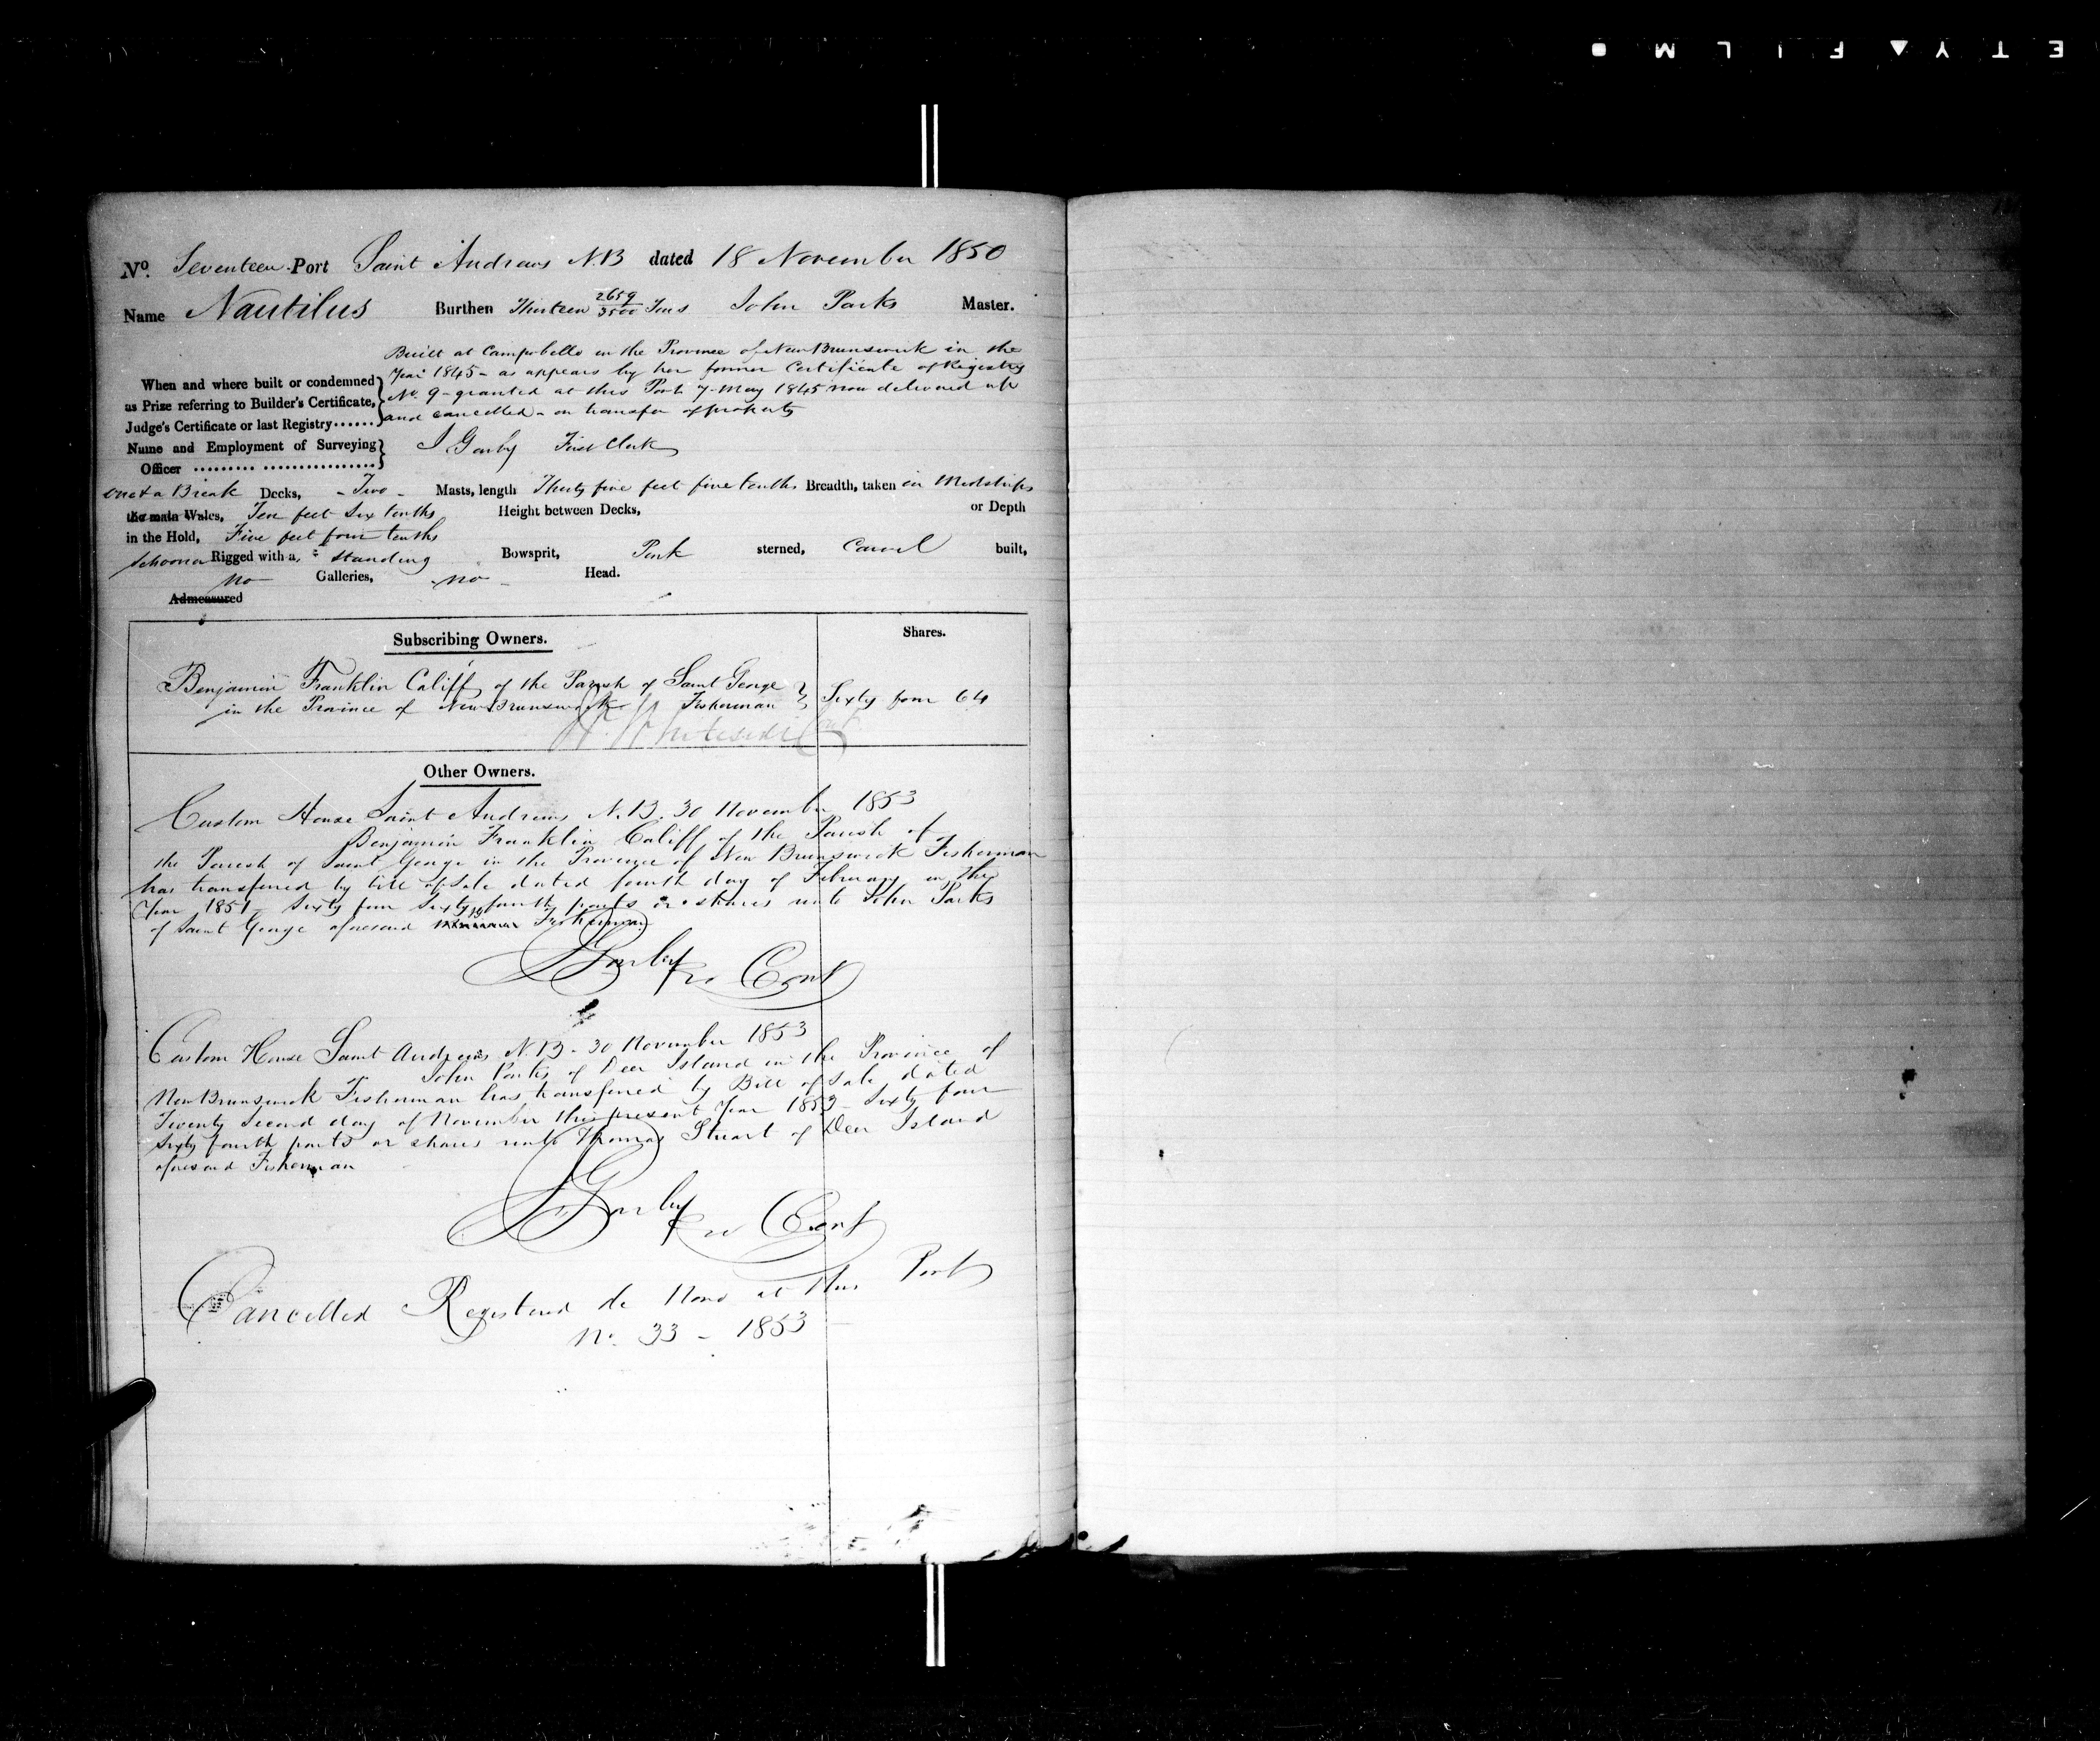 ETY▲FILM
No. Seventeen Port Saint Andrews N.B dated 18 November 1850
Name Nautilus Burthen Thirteen 2659/3500 Tons John Parks Master.
Built at Campobello in the Province of New Brunswick in the
Year 1845 - as appears by her former Certificate of Registry
When and where built or condemned
No. 9 - granted at this Port 7 May 1845 now delivered up
as Prize referring to Builder's Certificate,
and cancelled - on transfer of property
Judge's Certificate or last Registry......
Name and Employment of Surveying
Officer ......... ................
First Clerk
one & a Break Decks, - Two - Masts, length Thirty five feet five tenths Breadth, taken in Midships
the main Wales, Ten feet Six tenths Height between Decks, or Depth
in the Hold, Five feet four tenths
Schooner Rigged with a, standing Bowsprit, Pink sterned, Carvel built,
no Galleries, - no - Head.
Admeasured
Subscribing Owners. Shares.
Benjamin Franklin Califf of the Parish of Saint George
in the Province of New Brunswick Fisherman Sixty four 64
Whiteside Cont
Other Owners.
Custom House Saint Andrews N.B. 30 November 1853
Benjamin Franklin Califf of the Parish of
the Parish of Saint George in the Province of New Brunswick Fisherman
has transferred by bill of Sale dated fourth day of February in the
Year 1851 Sixty four Sixty fourth parts or shares unto John Parks
of Saint George aforesaid Fisherman
pro Cont
Custom House Saint Andrews N.B - 30 November 1853
John Parks of Deer Island in the Province of
New Brunswick Fisherman has transferred by Bill of Sale dated
Twenty Second day of November this present Year 1853 - Sixty four
Sixty fourth parts or shares unto Thomas Stuart of Deer Island
aforesaid Fisherman
pro Cont
Cancelled Registered de Novo at this Port
No. 33 - 1853